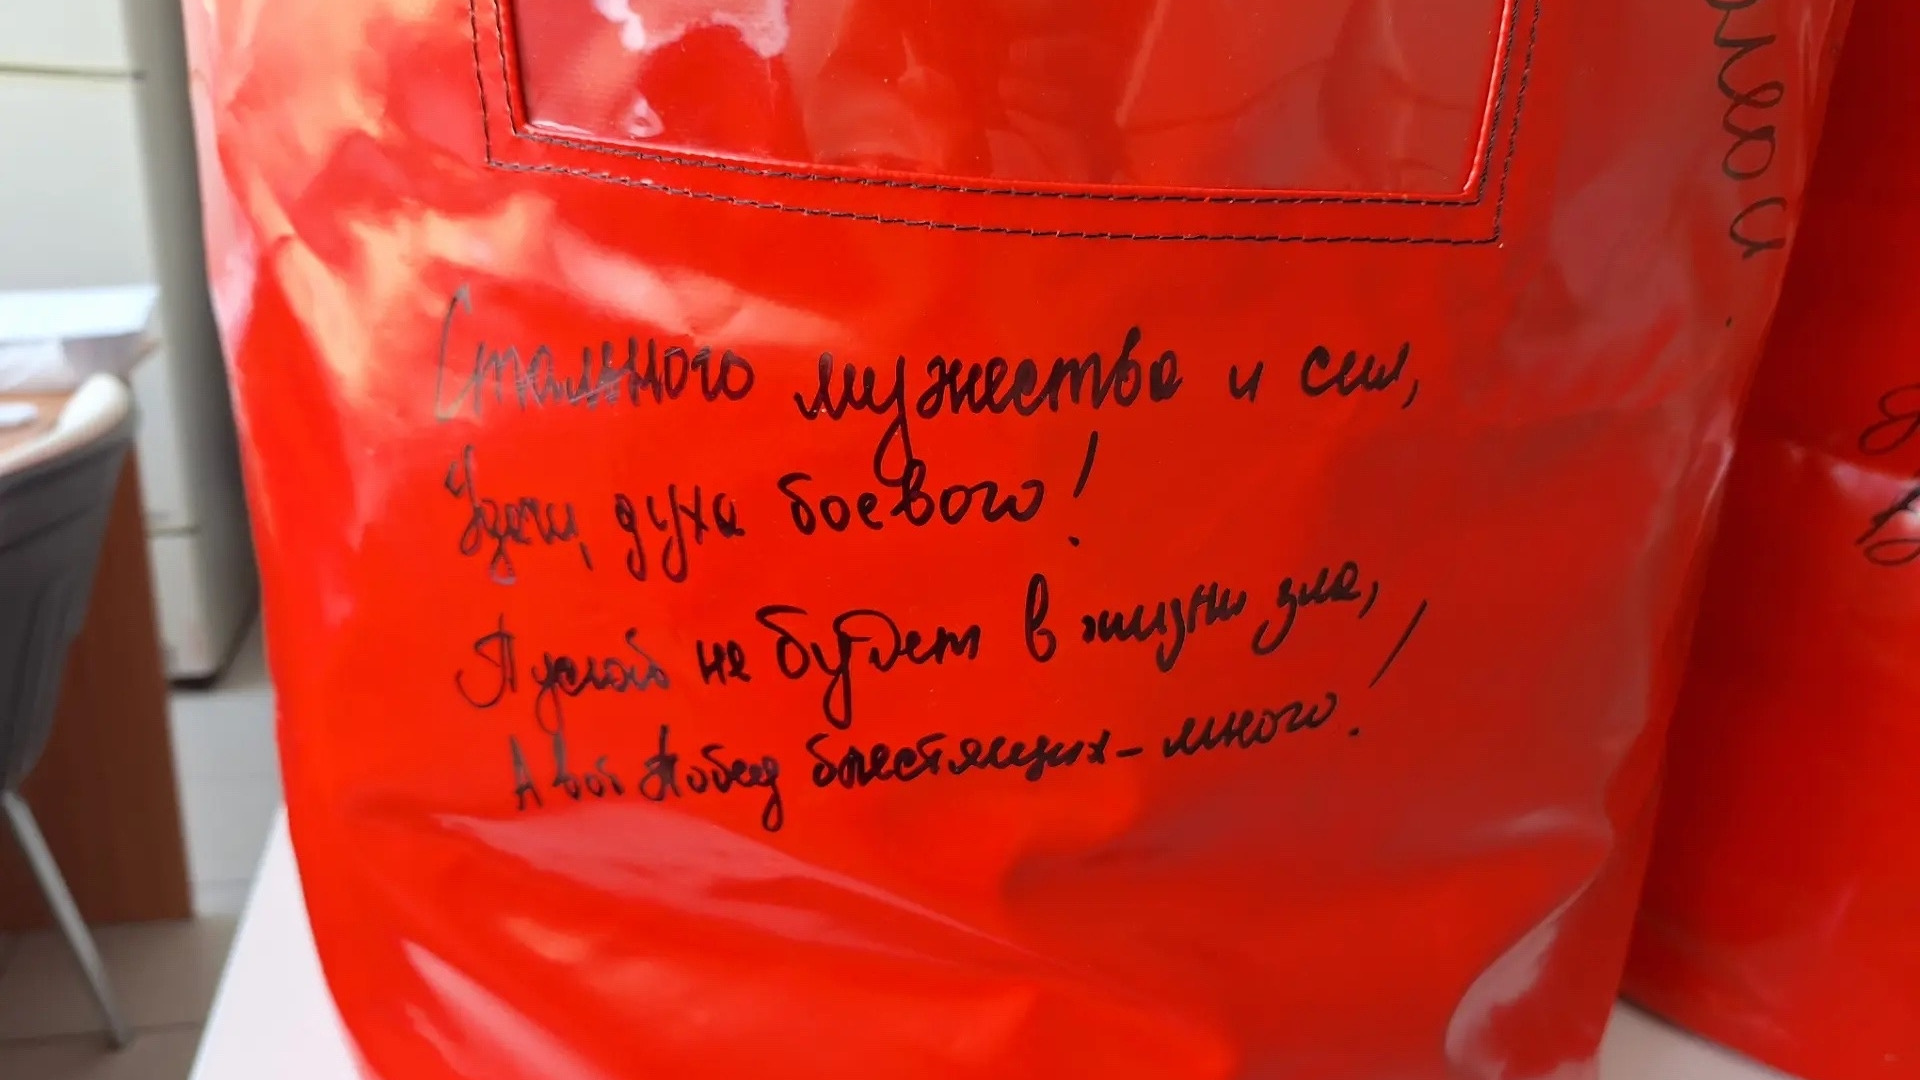 Стального мужества и сил,
Удачи, духа боевого!
Пускай не будет в жизни зла,
А вот побед блестящих - много!